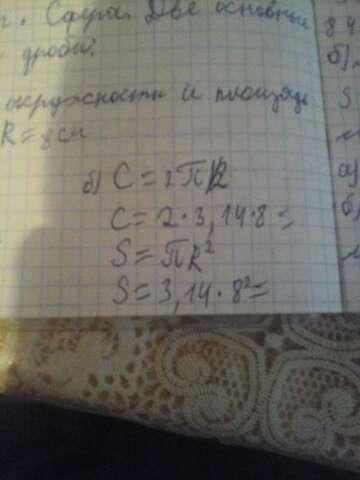 Сфера. Две основные
дроби:
окружности и площадь
R = 8 см
б) C = 2πR
C = 2 · 3,14 · 8 =
S = πR²
S = 3,14 · 8² =
84
б)
S
а)
б)